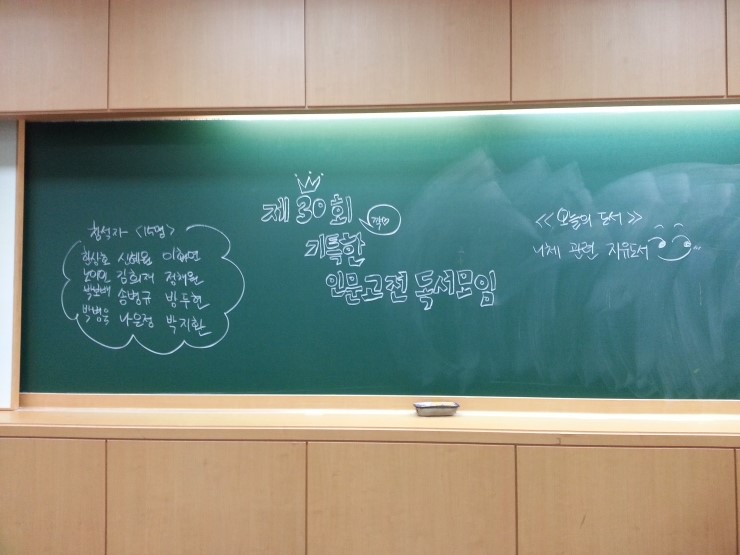 제 30회
꺅♡
기특한
인문고전 독서모임
참석자 <15명>
한상훈 신혜원 이해연
김희재 정해원
박보배 송병규 방두현
박범욱 나은정 박지환
≪오늘의 도서≫
니체 관련 자유도서